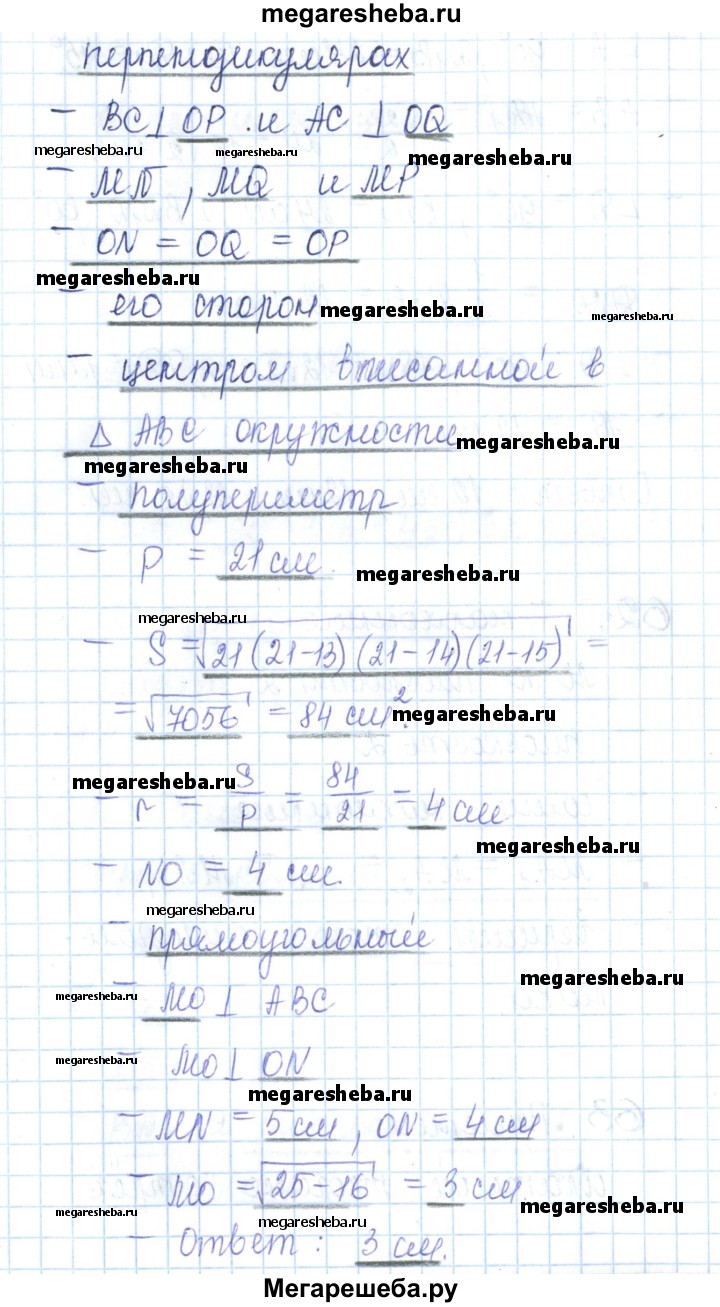 megaresheba.ru
перпендикулярах
– BC⊥ OP и AC ⊥ OQ
megaresheba.ru megaresheba.ru megaresheba.ru
– MN, MQ и MP
– ON = OQ = OP
megaresheba.ru
– его сторон megaresheba.ru megaresheba.ru
– центром вписанной в
Δ ABC окружности megaresheba.ru
megaresheba.ru
– полупериметр
– P = 21 см.
megaresheba.ru
megaresheba.ru
– S = √21(21-13)(21-14)(21-15) =
= √7056 = 84 см². megaresheba.ru
megaresheba.ru
– r = S/P = 84/21 = 4 см
megaresheba.ru
– NO = 4 см.
megaresheba.ru
– прямоугольный
megaresheba.ru
megaresheba.ru – MO ⊥ ABC
megaresheba.ru – MO ⊥ ON
megaresheba.ru
– MN = 5 см, ON = 4 см
– MO = √25-16 = 3 см
megaresheba.ru megaresheba.ru
megaresheba.ru
– Ответ: 3 см.
Мегарешеба.ру